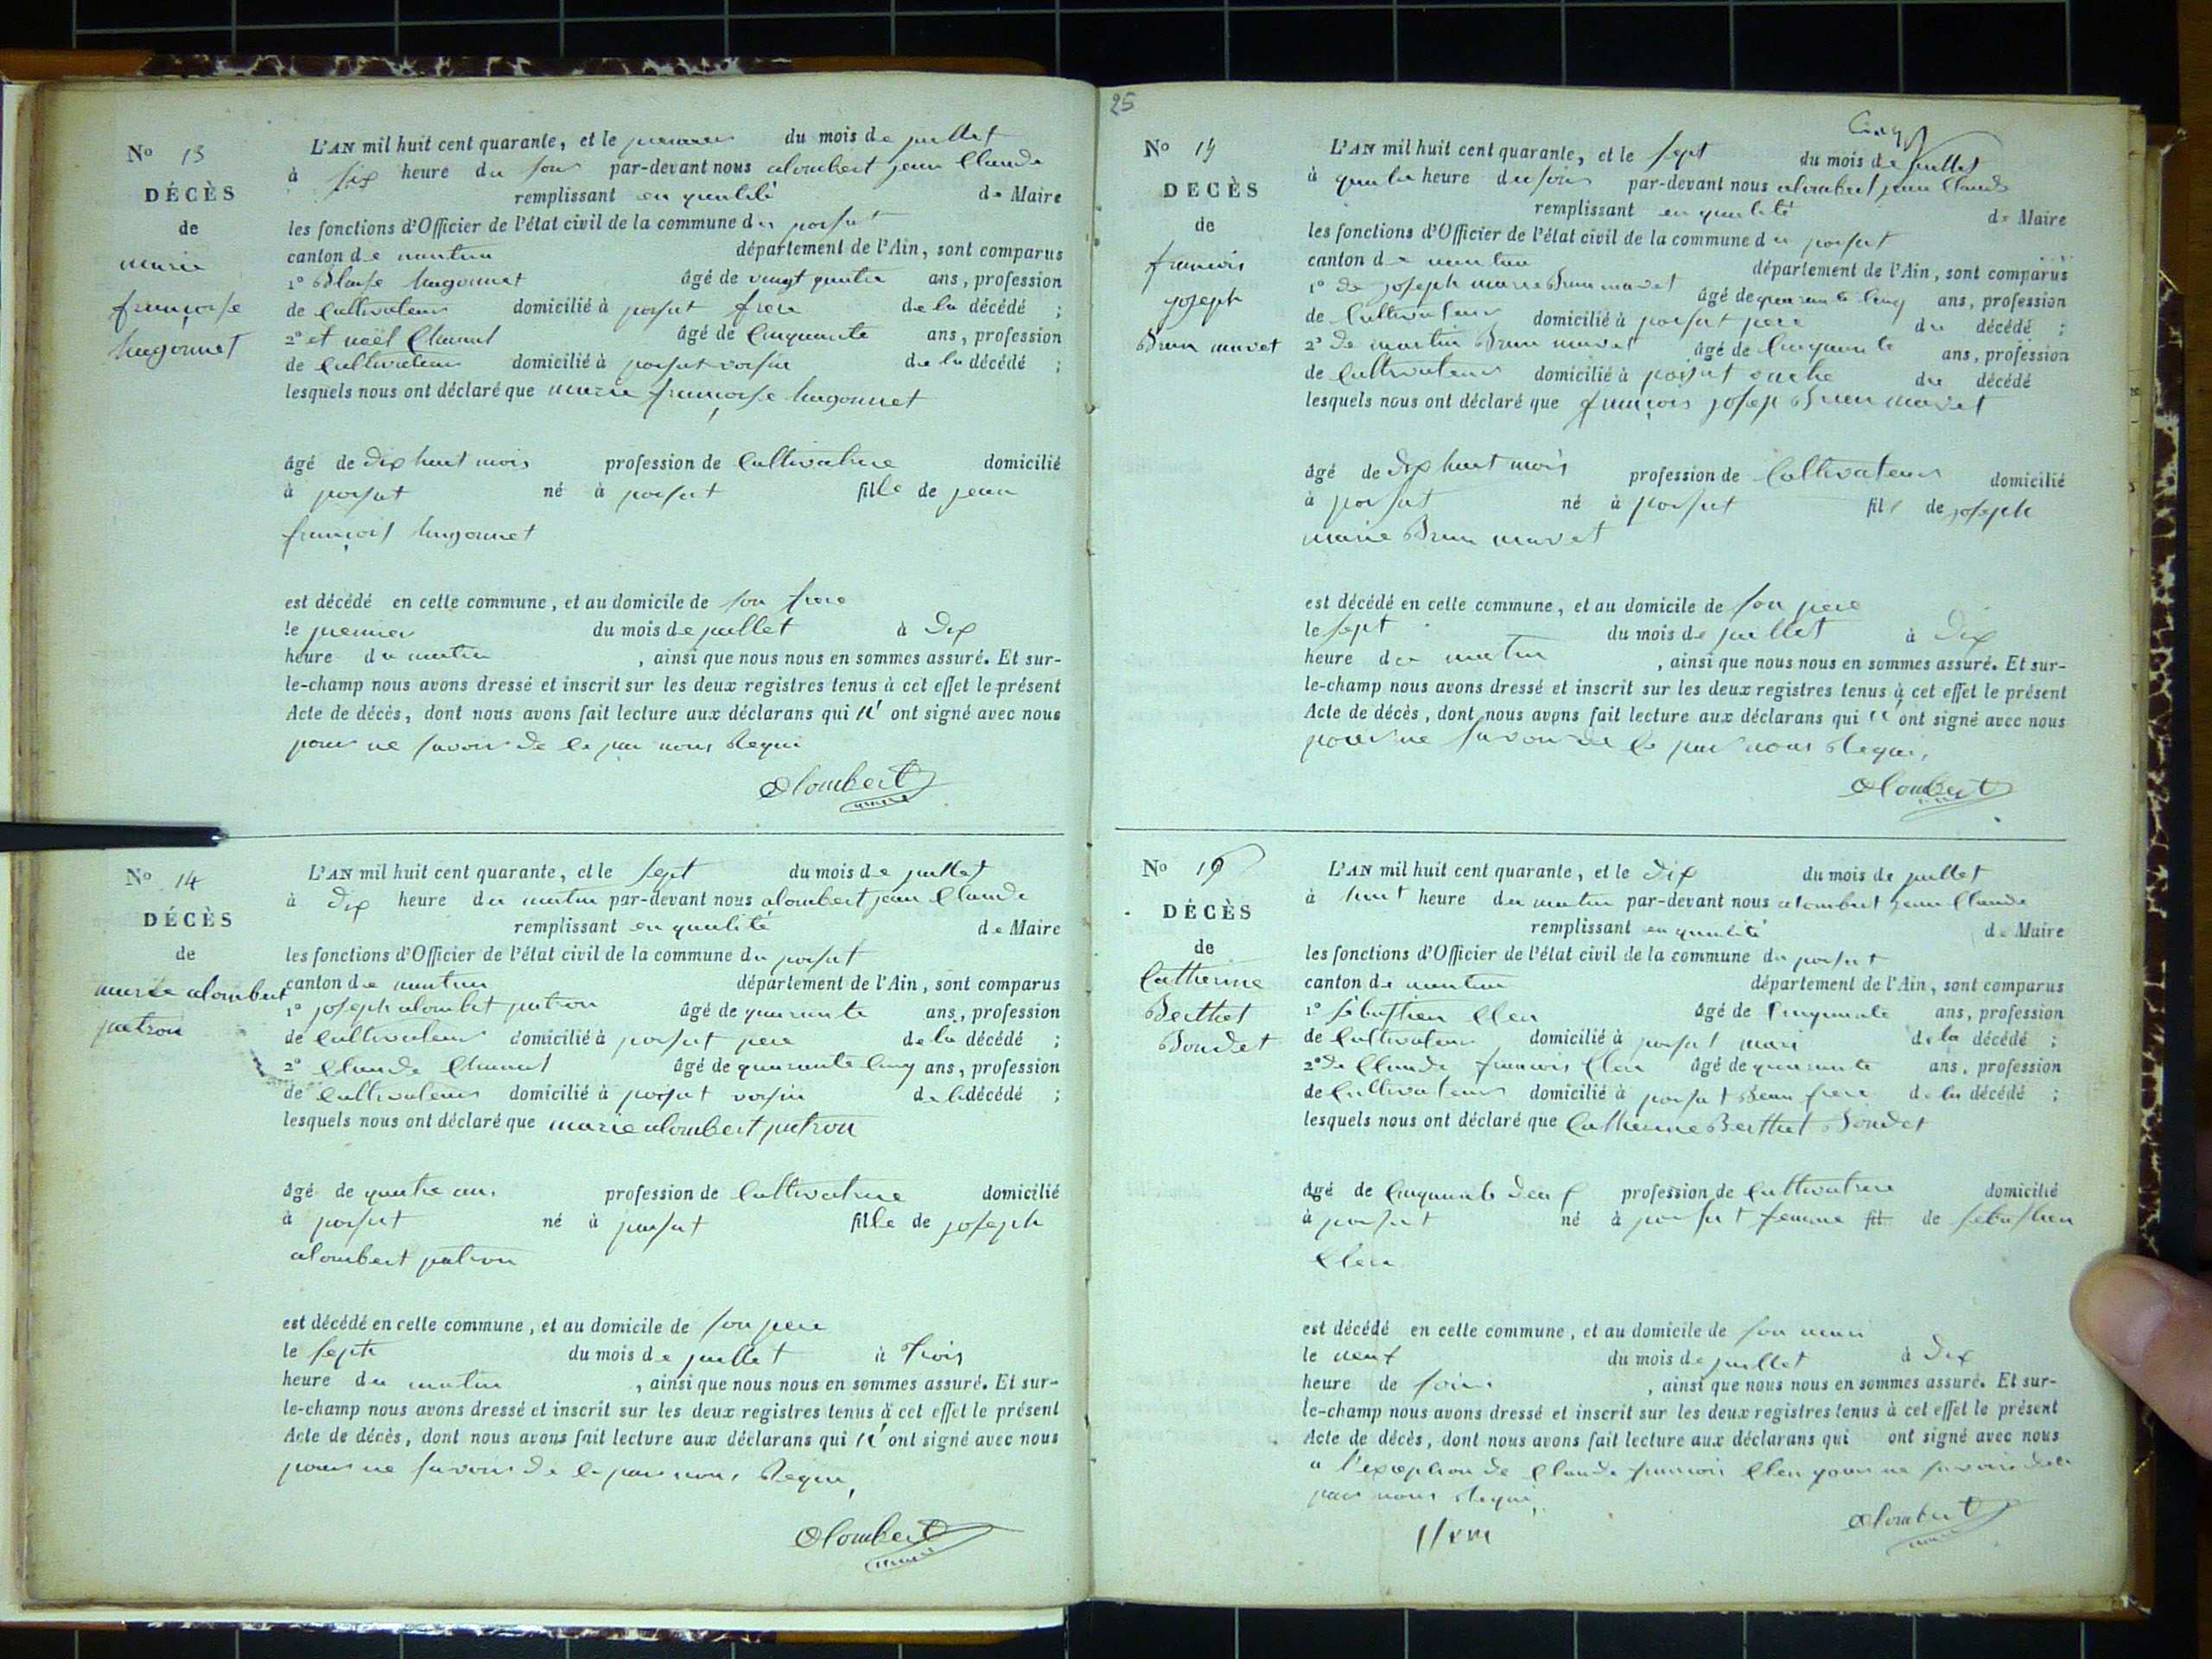 No 13
DÉCÈS
de
marie
françoise
hugonnet
L'AN mil huit cent quarante, et le premier du mois de juillet
à six heure du soir par-devant nous alombert jean Claude
remplissant en qualité de Maire
les fonctions d'Officier de l'état civil de la commune du poisat
canton de nantua département de l'Ain, sont comparus
1° Blaise hugonnet âgé de vingt quatre ans, profession
de Cultivateur domicilié à poisat frere de la décédé ;
2° et noël Chanal âgé de Cinquante ans, profession
de Cultivateur domicilié à poisat voisin de la décédé ;
lesquels nous ont déclaré que marie françoise hugonnet
âgé de dix huit mois profession de Cultivatrice domicilié
à poisat né à poisat fille de jean
françois hugonnet
est décédé en cette commune, et au domicile de son frere
le premier du mois de juillet à Dix
heure du matin , ainsi que nous nous en sommes assuré. Et sur-
le-champ nous avons dressé et inscrit sur les deux registres tenus à cet effet le présent
Acte de décès, dont nous avons fait lecture aux déclarans qui n' ont signé avec nous
pour ne savoir de ce par nous Requi
Alombert
maire
No 14
DÉCÈS
de
marie alombert
patron
L'AN mil huit cent quarante, et le sept du mois de juillet
à Dix heure du matin par-devant nous alombert jean Claude
remplissant en qualité de Maire
les fonctions d'Officier de l'état civil de la commune du poisat
canton de nantua département de l'Ain, sont comparus
1° joseph alombet patron âgé de quarante ans, profession
de Cultivateur domicilié à poisat pere de la décédé ;
2° Claude Chanal âgé de quarante cinq ans, profession
de Cultivateur domicilié à poisat voisin de la décédé ;
lesquels nous ont déclaré que marie alombert patron
âgé de quatre an. profession de Cultivatrice domicilié
à poisat né à poisat fille de joseph
alombert patron
est décédé en cette commune, et au domicile de son pere
le sept du mois de juillet à trois
heure du matin , ainsi que nous nous en sommes assuré. Et sur-
le-champ nous avons dressé et inscrit sur les deux registres tenus à cet effet le présent
Acte de décès, dont nous avons fait lecture aux déclarans qui n' ont signé avec nous
pour ne savoir de ce par nous Requi,
Alombert
maire
25
No 14
DECÈS
de
francois
joseph
Brun mavet
L'AN mil huit cent quarante, et le sept du mois de juillet
à quatre heure du soir par-devant nous alombert jean Claude
remplissant en qualité de Maire
les fonctions d'Officier de l'état civil de la commune du poisat
canton de nantua département de l'Ain, sont comparus
1° de joseph marie Brun mavet âgé de quarante cinq ans, profession
de Cultivateur domicilié à poisat pere du décédé ;
2° de martin Brun mavet âgé de Cinquante ans, profession
de Cultivateur domicilié à poisat oncle du décédé
lesquels nous ont déclaré que françois josep Brun mavet
âgé de dix huit mois profession de Cultivateur domicilié
à poisat né à poisat fils de joseph
marie Brun mavet
est décédé en cette commune, et au domicile de son pere
le sept du mois de juillet à Dix
heure du matin , ainsi que nous nous en sommes assuré. Et sur-
le-champ nous avons dressé et inscrit sur les deux registres tenus à cet effet le présent
Acte de décès, dont nous avons fait lecture aux déclarans qui n' ont signé avec nous
pour ne savoir de ce par nous Requi,
Alombert
No 16
DÉCÈS
de
Catherine
Berthet
Bondet
L'AN mil huit cent quarante, et le Dix du mois de juillet
à huit heure du matin par-devant nous alombert jean Claude
remplissant en qualité de Maire
les fonctions d'Officier de l'état civil de la commune du poisat
canton de nantua département de l'Ain, sont comparus
1° sébastien Clen âgé de Cinquante ans, profession
de Cultivateur domicilié à poisat mari de la décédé ;
2° de Claude francois Clen âgé de quarante ans, profession
de Cultivateur domicilié à poisat Beau frere de la décédé ;
lesquels nous ont déclaré que Catherine Berthet Bondet
âgé de Cinquante profession de Cultivatrice domicilié
à poisat né à poisat femme fil de sebastien
Clen
est décédé en cette commune, et au domicile de son mari
le neuf du mois de juillet à Dix
heure de soir , ainsi que nous nous en sommes assuré. Et sur-
le-champ nous avons dressé et inscrit sur les deux registres tenus à cet effet le présent
Acte de décès, dont nous avons fait lecture aux déclarans qui ont signé avec nous
a l'exeption de Claude francois Clen pour ne savoir de ce
par nous Requi,
Alombert